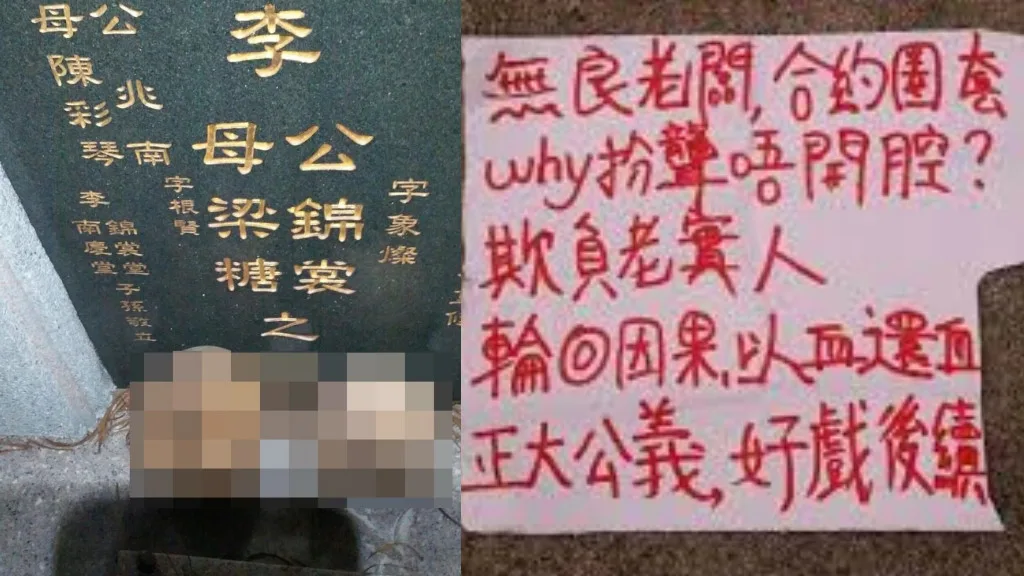 李
公錦裳
母梁糖
之
字象燦
字根賢
公兆南
母陳彩琴
李錦裳堂
南慶堂子孫敬立
無良老闆,合約圈套
why扮聾唔開腔?
欺負老實人
輪回因果,以血還血
正大公義,好戲後續